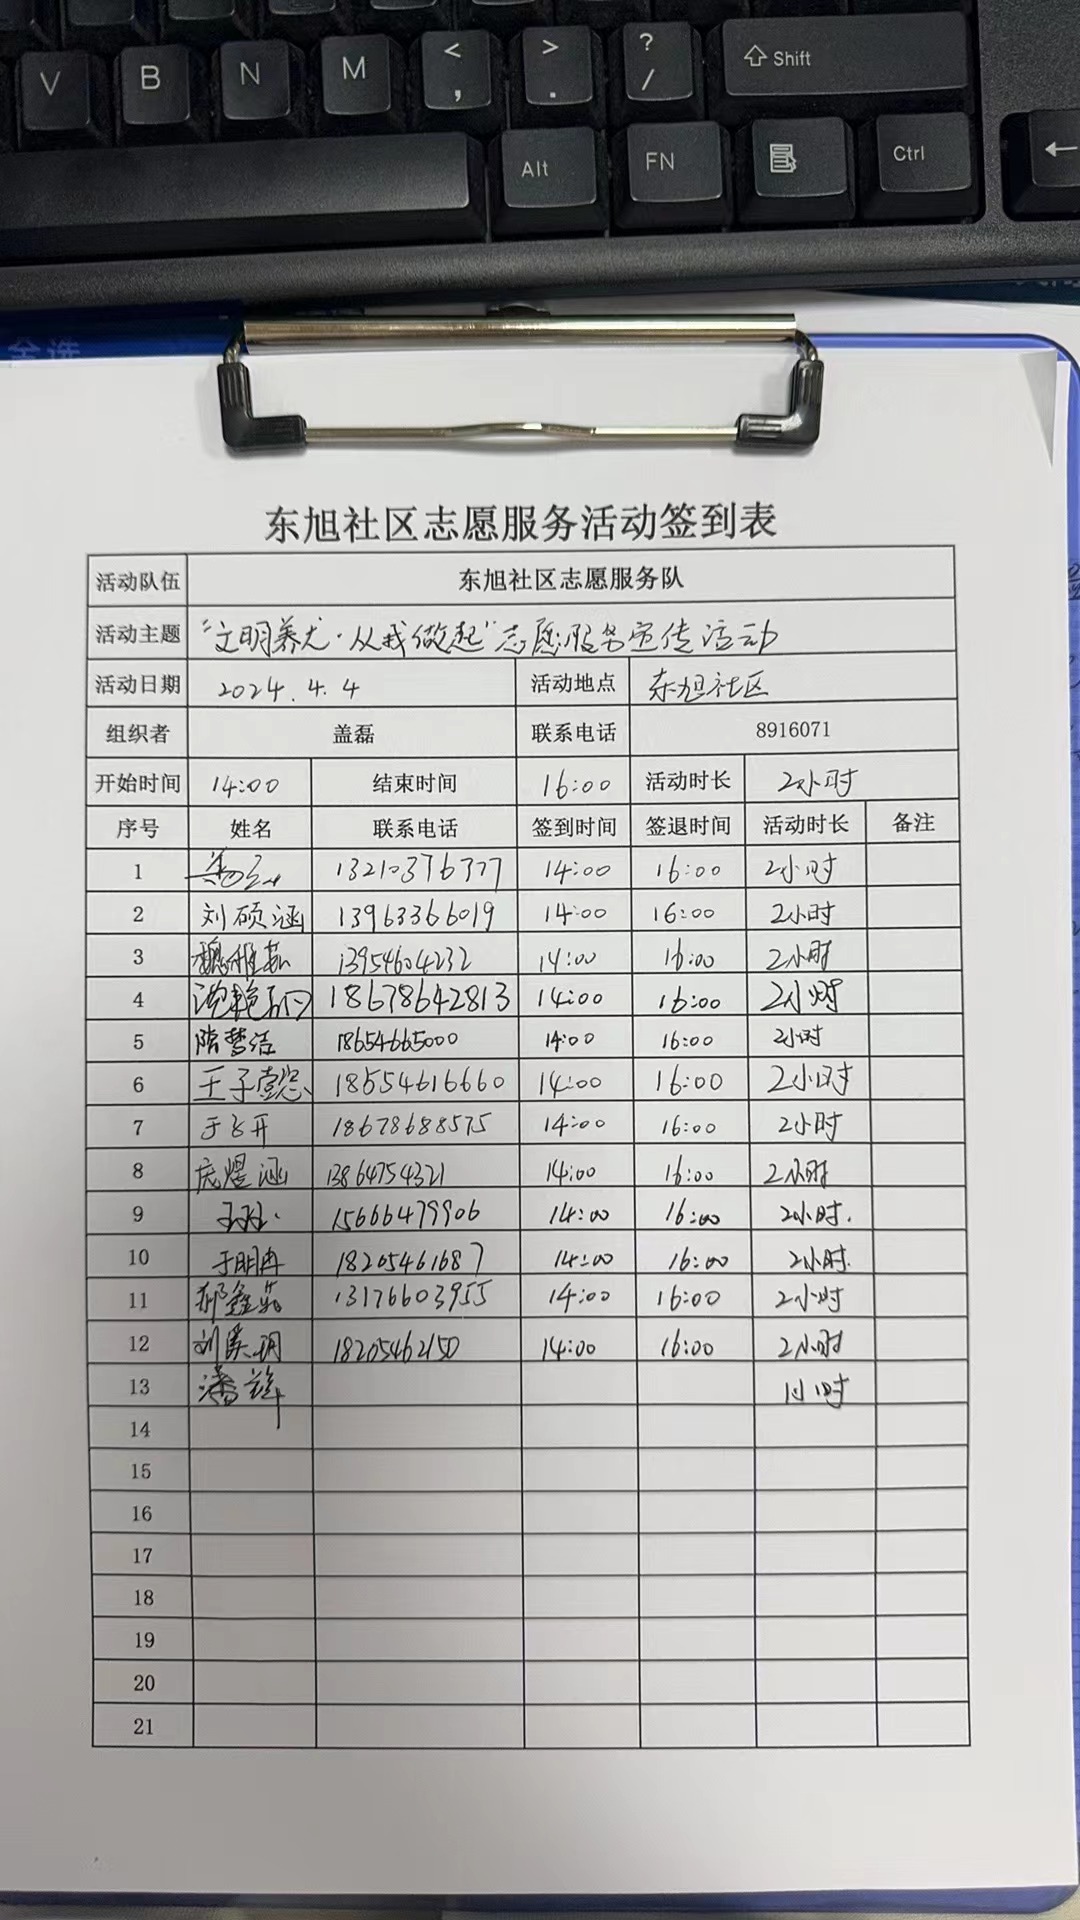 V B N M < , > . ? / Shift
Alt FN Ctrl
东旭社区志愿服务活动签到表
活动队伍 东旭社区志愿服务队
活动主题 “文明养犬·从我做起”志愿服务宣传活动
活动日期 2024.4.4 活动地点 东旭社区
组织者 盖磊 联系电话 8916071
开始时间 14:00 结束时间 16:00 活动时长 2小时
序号 姓名 联系电话 签到时间 签退时间 活动时长 备注
1 13210376377 14:00 16:00 2小时
2 刘硕涵 13963366019 14:00 16:00 2小时
3 魏雅茹 13954604232 14:00 16:00 2小时
4 18678642813 14:00 16:00 2小时
5 隋梦洁 18654665000 14:00 16:00 2小时
6 王子 18554616660 14:00 16:00 2小时
7 于飞开 18678688575 14:00 16:00 2小时
8 庞煜涵 13864754321 14:00 16:00 2小时
9 15666479906 14:00 16:00 2小时.
10 于明冉 18205461687 14:00 16:00 2小时.
11 13176603955 14:00 16:00 2小时
12 刘昊玥 18205462150 14:00 16:00 2小时
13 潘 1小时
14
15
16
17
18
19
20
21